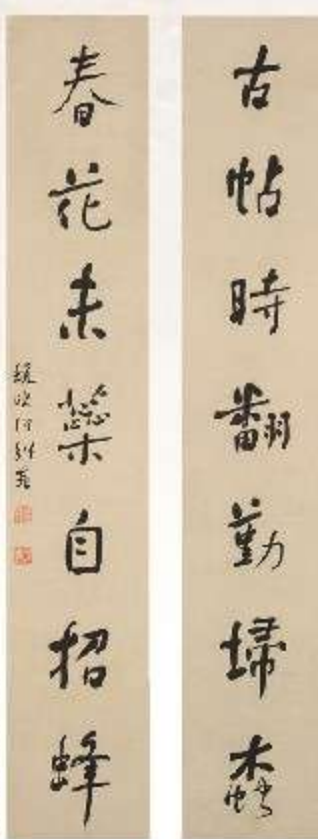 古帖時翻勤埽螙
春花未蘂自招蜂
蝯叟何紹基